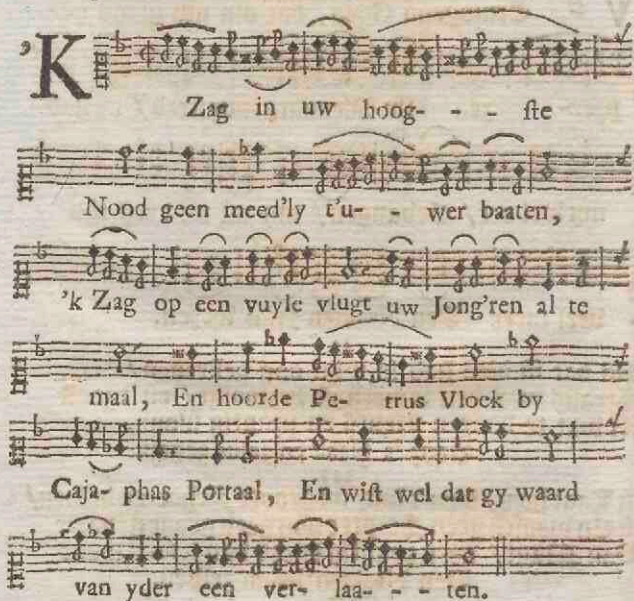 'K
Zag in uw hoog- - - ſte
Nood geen meed'ly t'u- - wer baaten,
'k Zag op een vuyle vlugt uw Jong'ren al te
maal, En hoorde Pe- trus Vloek by
Caja- phas Portaal, En wiſt wel dat gy waard
van yder een ver- laa- - - ten.